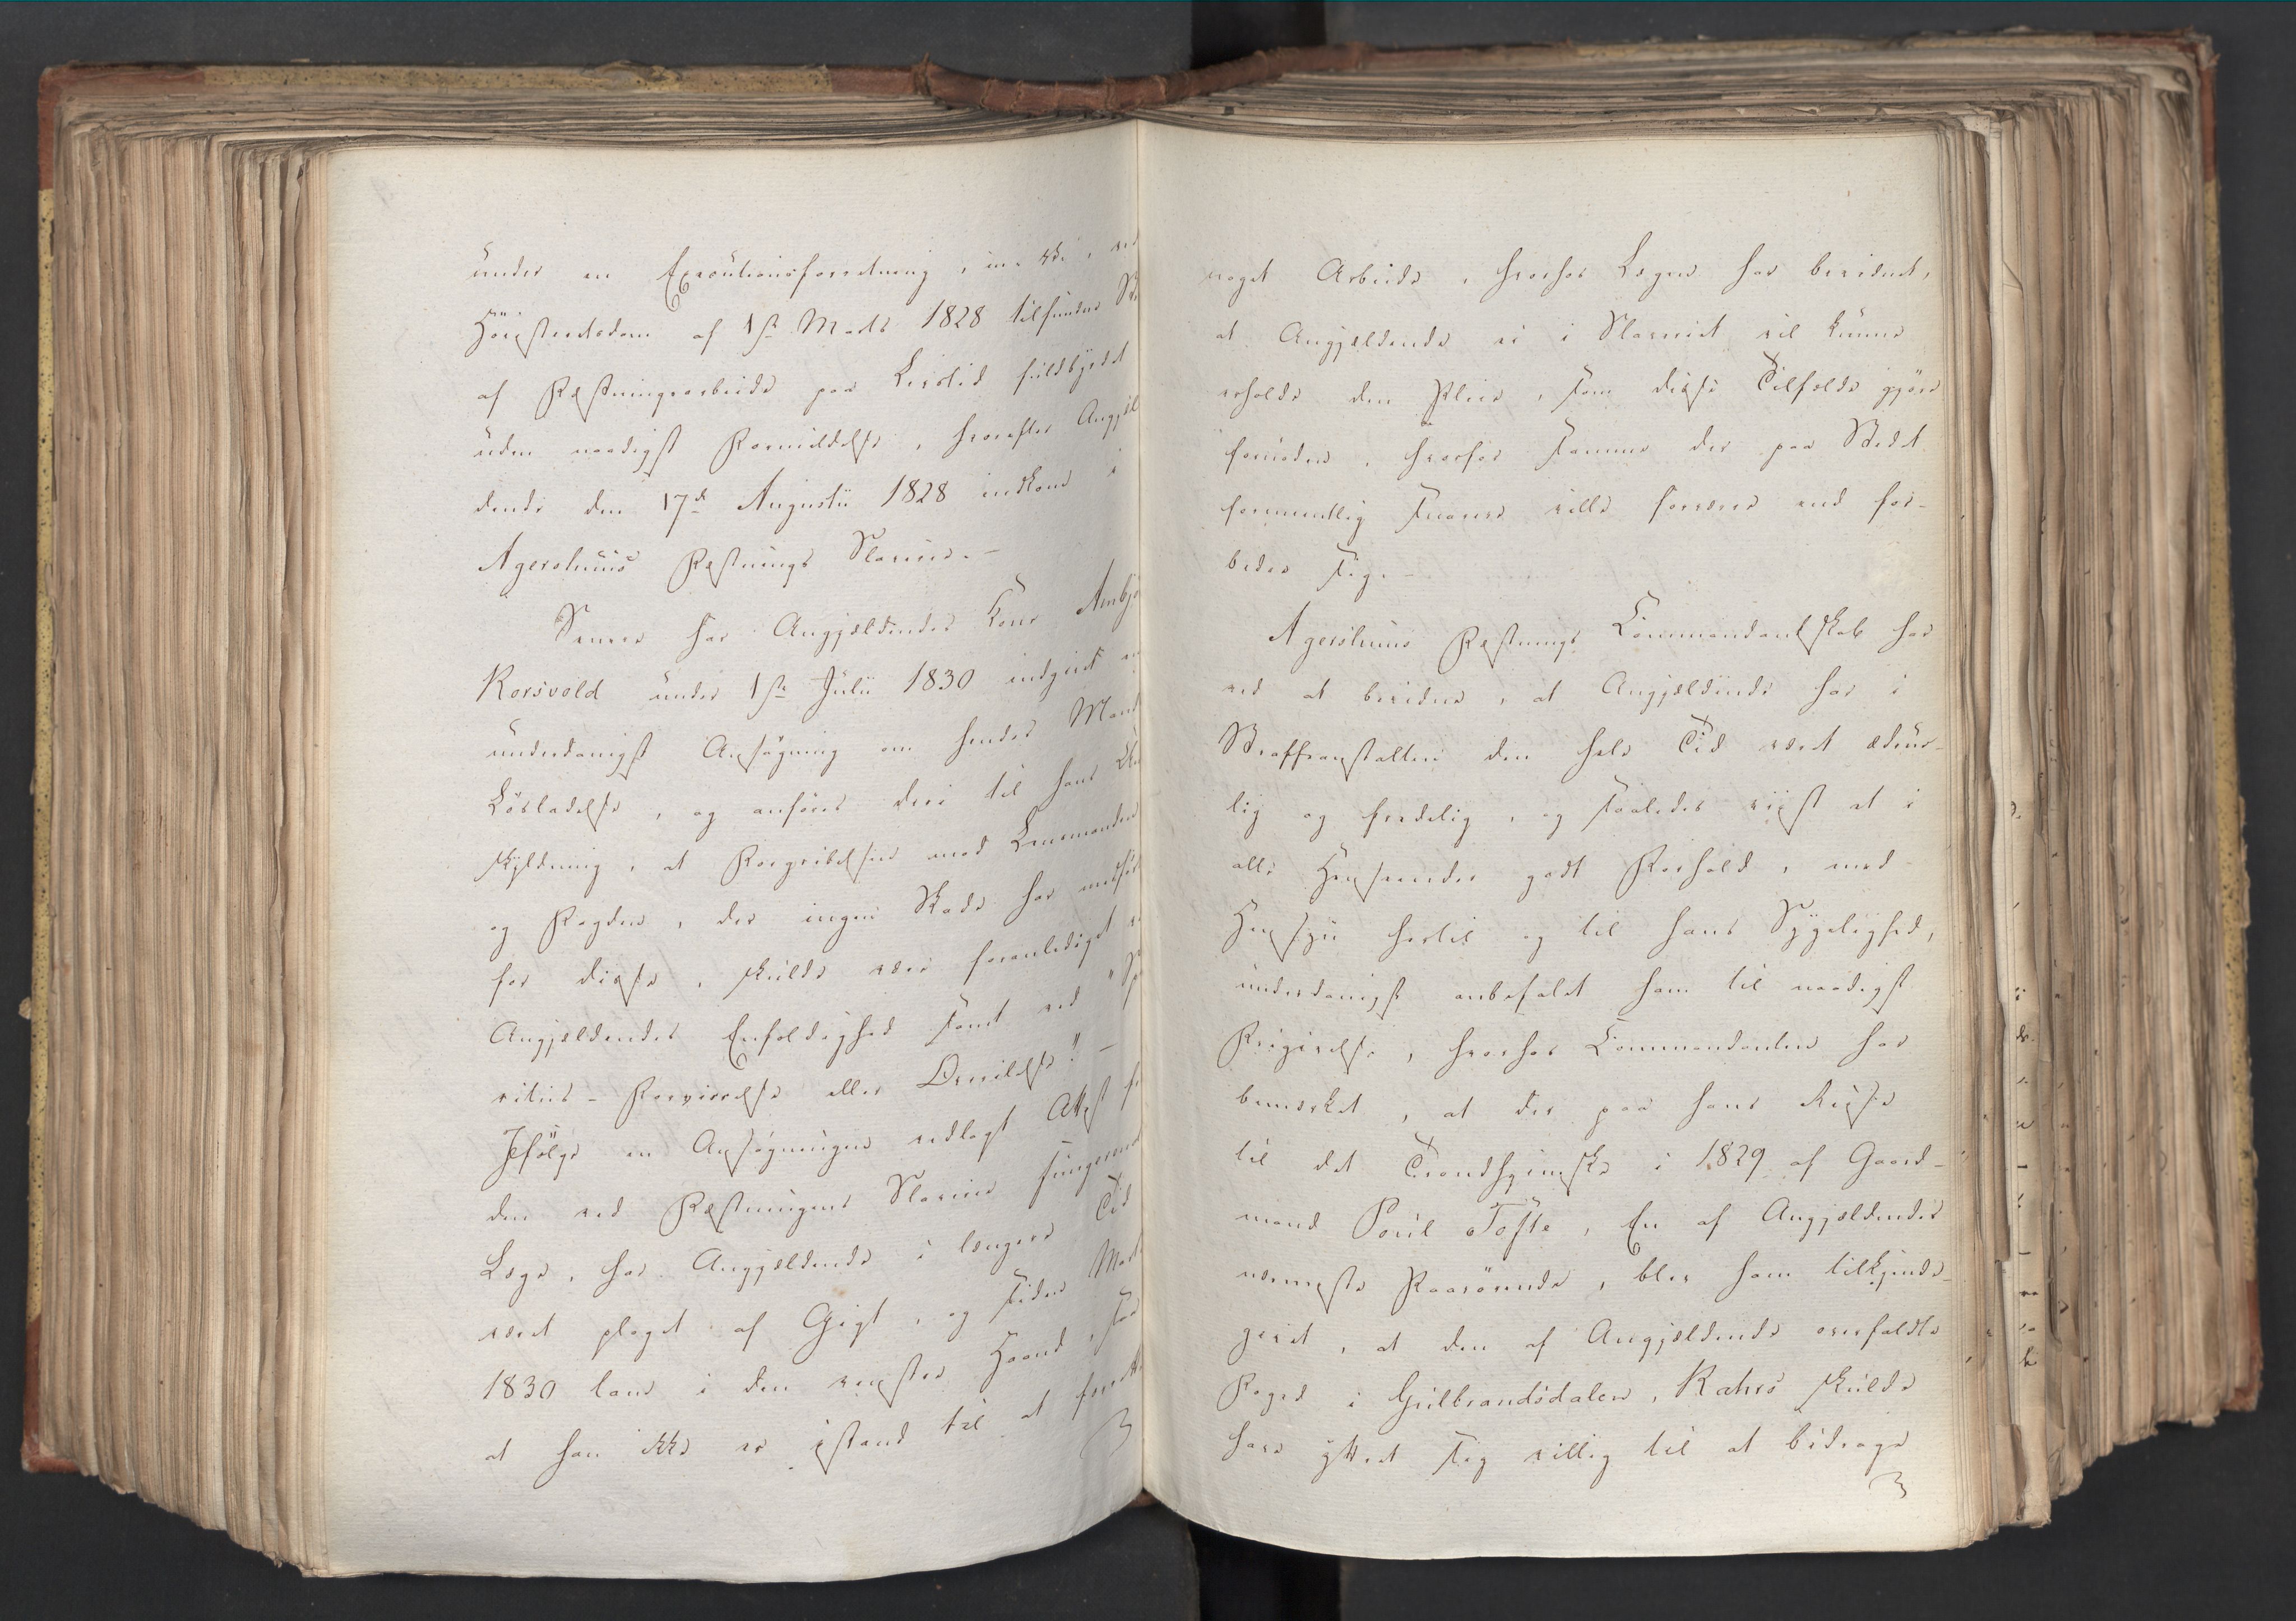 under en Executionsforretning, m. v.
Höiesteretsdom af 1ste Marts 1828 tilfunden
af Fæstningsarbeide paa Livstid fuldbyrdet
uden naadigst Formildelse, hvorefter Angjæl
dende den 17de Augustii 1828 indkom i
Agershuus Fæstnings Slaverie. -
Senere har Angjældendes Kone Ambjö
Korsvold under 1ste Julii 1830 indgivet en
underdanigst Ansögning om hendes Mands
Lösladelse, og anföres deri til hans Und
skyldning, at Forgribelsen mod Lensmanden
og Fogden, der ingen Skade har medfört
for disse, skulde være foranlediget ved
Angjældendes Enfoldighed samt ved "Spi
ritus-Forvirrelse eller Overilelse". -
Ifölge en Ansögningen vedlagt Attest fra
den ved Fæstningens Slaverie fungerende
Læge, har Angjældende i længere Tid
været plaget af Gigt, og siden Marts
1830 lam i den venstre Haand, saa
at han ikke er istand til at forrette
noget Arbeide, hvorhos Lægen har bevidnet,
at Angjældende ei i Slaveriet vil kunne
erholde den Pleie, som disse Tilfælde gjöre
fornöden, hvorfor samme der paa Stedet
formentlig snarere ville forværre end for-
bedre sig. -
Agershuus Fæstnings Commandantskab har
ved at bevidne, at Angjældende har i
Straffeanstalten den hele Tid været ædrue-
lig og fredelig, og saaledes viist et i
alle Henseender godt Forhold, med
Hensyn hertil og til hans Sygelighed,
underdanigst anbefalet ham til naadigst
Frigivelse, hvorhos Commandanten har
bemærket, at der paa hans Reise
til det Trondhjemske i 1829 af Gaard-
mand Poul Tofte, En af Angjældendes
nærmeste Paarörende, blev ham tilkjende-
givet, at den af Angjældende overfaldte
Foged i Gulbrandsdalen, Rahrs skulde
have yttret sig villig til at bidrage